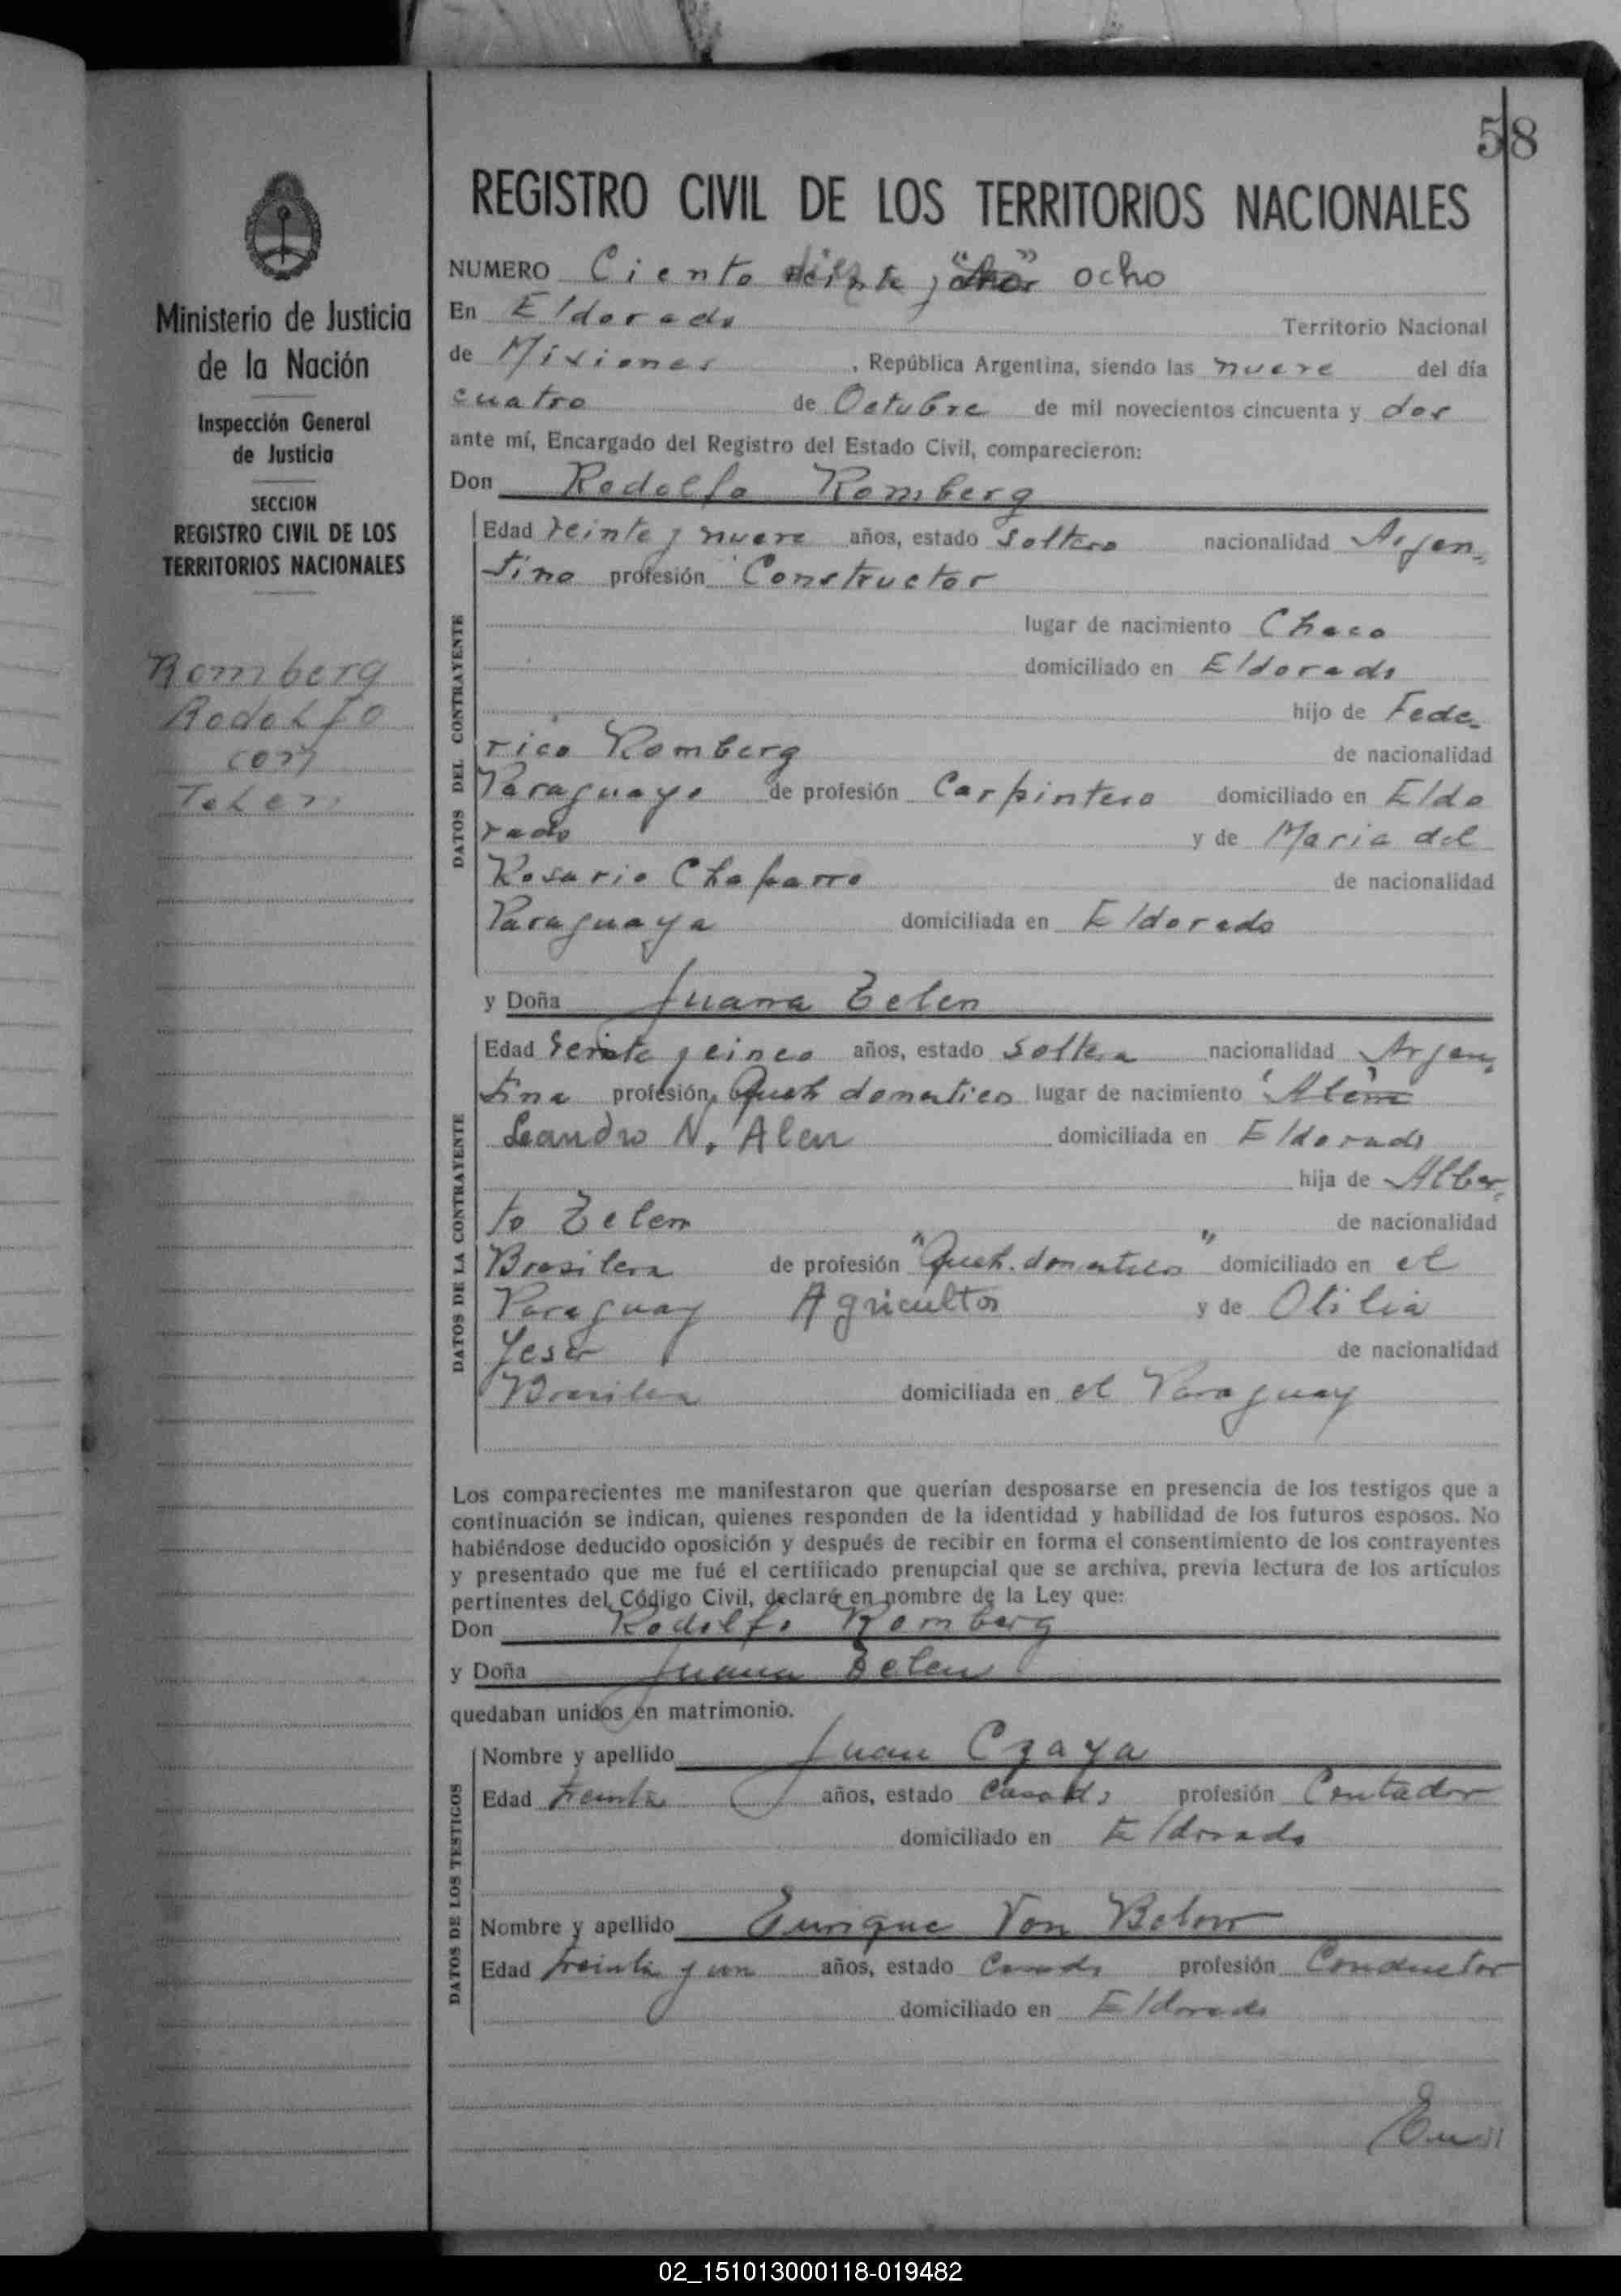 58
REGISTRO CIVIL DE LOS TERRITORIOS NACIONALES
Ministerio de Justicia
de la Nación
Inspección General
de Justicia
SECCION
REGISTRO CIVIL DE LOS
TERRITORIOS NACIONALES
Romberg
Rodolfo
con
Telen
NUMERO Ciento ocho
En Eldorado Territorio Nacional
de Misiones, República Argentina, siendo las nueve del día
cuatro de Octubre de mil novecientos cincuenta y dos
ante mí, Encargado del Registro del Estado Civil, comparecieron:
Don Rodolfo Romberg
DATOS DEL CONTRAYENTE
Edad veinte y nueve años, estado Soltero nacionalidad Argen-
tino profesión Constructor
lugar de nacimiento Chaco
domiciliado en Eldorado
hijo de Fede-
rico Romberg de nacionalidad
Paraguayo de profesión Carpintero domiciliado en Eldo
rado y de Maria del
Rosario Chaparro de nacionalidad
Paraguaya domiciliada en Eldorado
y Doña Juana Zelen
DATOS DE LA CONTRAYENTE
Edad veinte y cinco años, estado Soltera nacionalidad Argen-
tina profesión Queh domesticos lugar de nacimiento Alem
Leandro N. Alen domiciliada en Eldorado
hija de Alber-
to Zelen de nacionalidad
Brasilera de profesión "Queh. domesticos" domiciliado en el
Paraguay Agricultor y de Otilia
de nacionalidad
Brasilera domiciliada en el Paraguay
Los comparecientes me manifestaron que querían desposarse en presencia de los testigos que a
continuación se indican, quienes responden de la identidad y habilidad de los futuros esposos. No
habiéndose deducido oposición y después de recibir en forma el consentimiento de los contrayentes
y presentado que me fué el certificado prenupcial que se archiva, previa lectura de los artículos
pertinentes del Código Civil, declaré en nombre de la Ley que:
Don Rodolfo Romberg
y Doña Juana Zelen
quedaban unidos en matrimonio.
DATOS DE LOS TESTIGOS
Nombre y apellido Juan Czaya
Edad treinta años, estado Casado profesión Contador
domiciliado en Eldorado
Nombre y apellido Enrique Von Below
Edad treinta y un años, estado Casado profesión Conductor
domiciliado en Eldorado
02_151013000118-019482